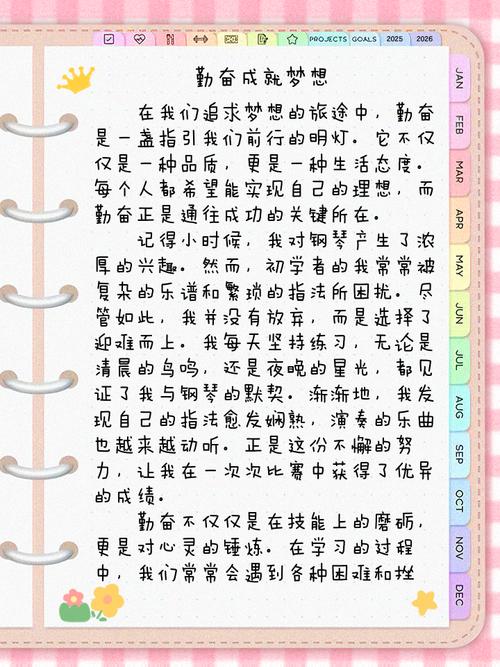 PROJECTS GOALS 2025 2026
勤奋成就梦想
在我们追求梦想的旅途中，勤奋
是一盏指引我们前行的明灯。它不仅
仅是一种品质，更是一种生活态度。
每个人都希望能实现自己的理想，而
勤奋正是通往成功的关键所在。
记得小时候，我对钢琴产生了浓
厚的兴趣。然而，初学者的我常常被
复杂的乐谱和繁琐的指法所困扰。尽
管如此，我并没有放弃，而是选择了
迎难而上。我每天坚持练习，无论是
清晨的鸟鸣，还是夜晚的星光，都见
证了我与钢琴的默契。渐渐地，我发
现自己的指法愈发娴熟，演奏的乐曲
也越来越动听。正是这份不懈的努
力，让我在一次次比赛中获得了优异
的成绩。
勤奋不仅仅是在技能上的磨砺，
更是对心灵的锤炼。在学习的过程
中，我们常常会遇到各种困难和挫
JAN
FEB
MAR
APR
MAY
JUN
JUL
AUG
SEP
OCT
NOV
DEC